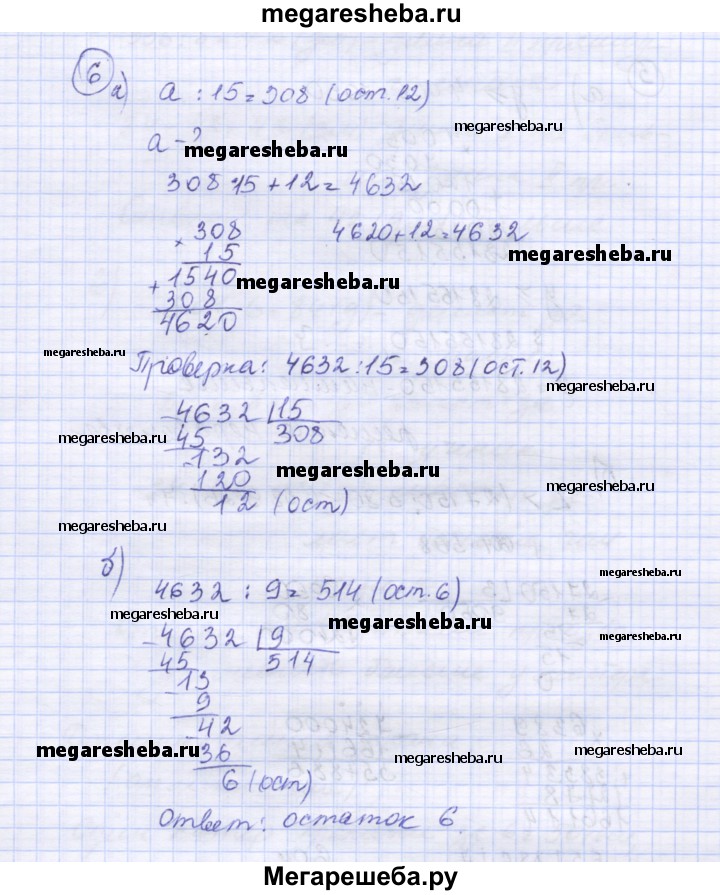 megaresheba.ru
6
а) a : 15 = 308 (ост. 12)
megaresheba.ru
a - ?
megaresheba.ru
308 · 15 + 12 = 4632
× 308 4620 + 12 = 4632
15 megaresheba.ru
+ 1540 megaresheba.ru
308
4620
megaresheba.ru
Проверка: 4632 : 15 = 308 (ост. 12)
megaresheba.ru
- 4632 15
45 308
megaresheba.ru megaresheba.ru
- 132
megaresheba.ru
120
megaresheba.ru
12 (ост)
megaresheba.ru
б)
megaresheba.ru
4632 : 9 = 514 (ост. 6)
megaresheba.ru megaresheba.ru
- 4632 9
megaresheba.ru
45 514
- 13
9
- 42
36
megaresheba.ru megaresheba.ru
6 (ост)
Ответ: остаток 6.
megaresheba.ru
Мегарешеба.ру